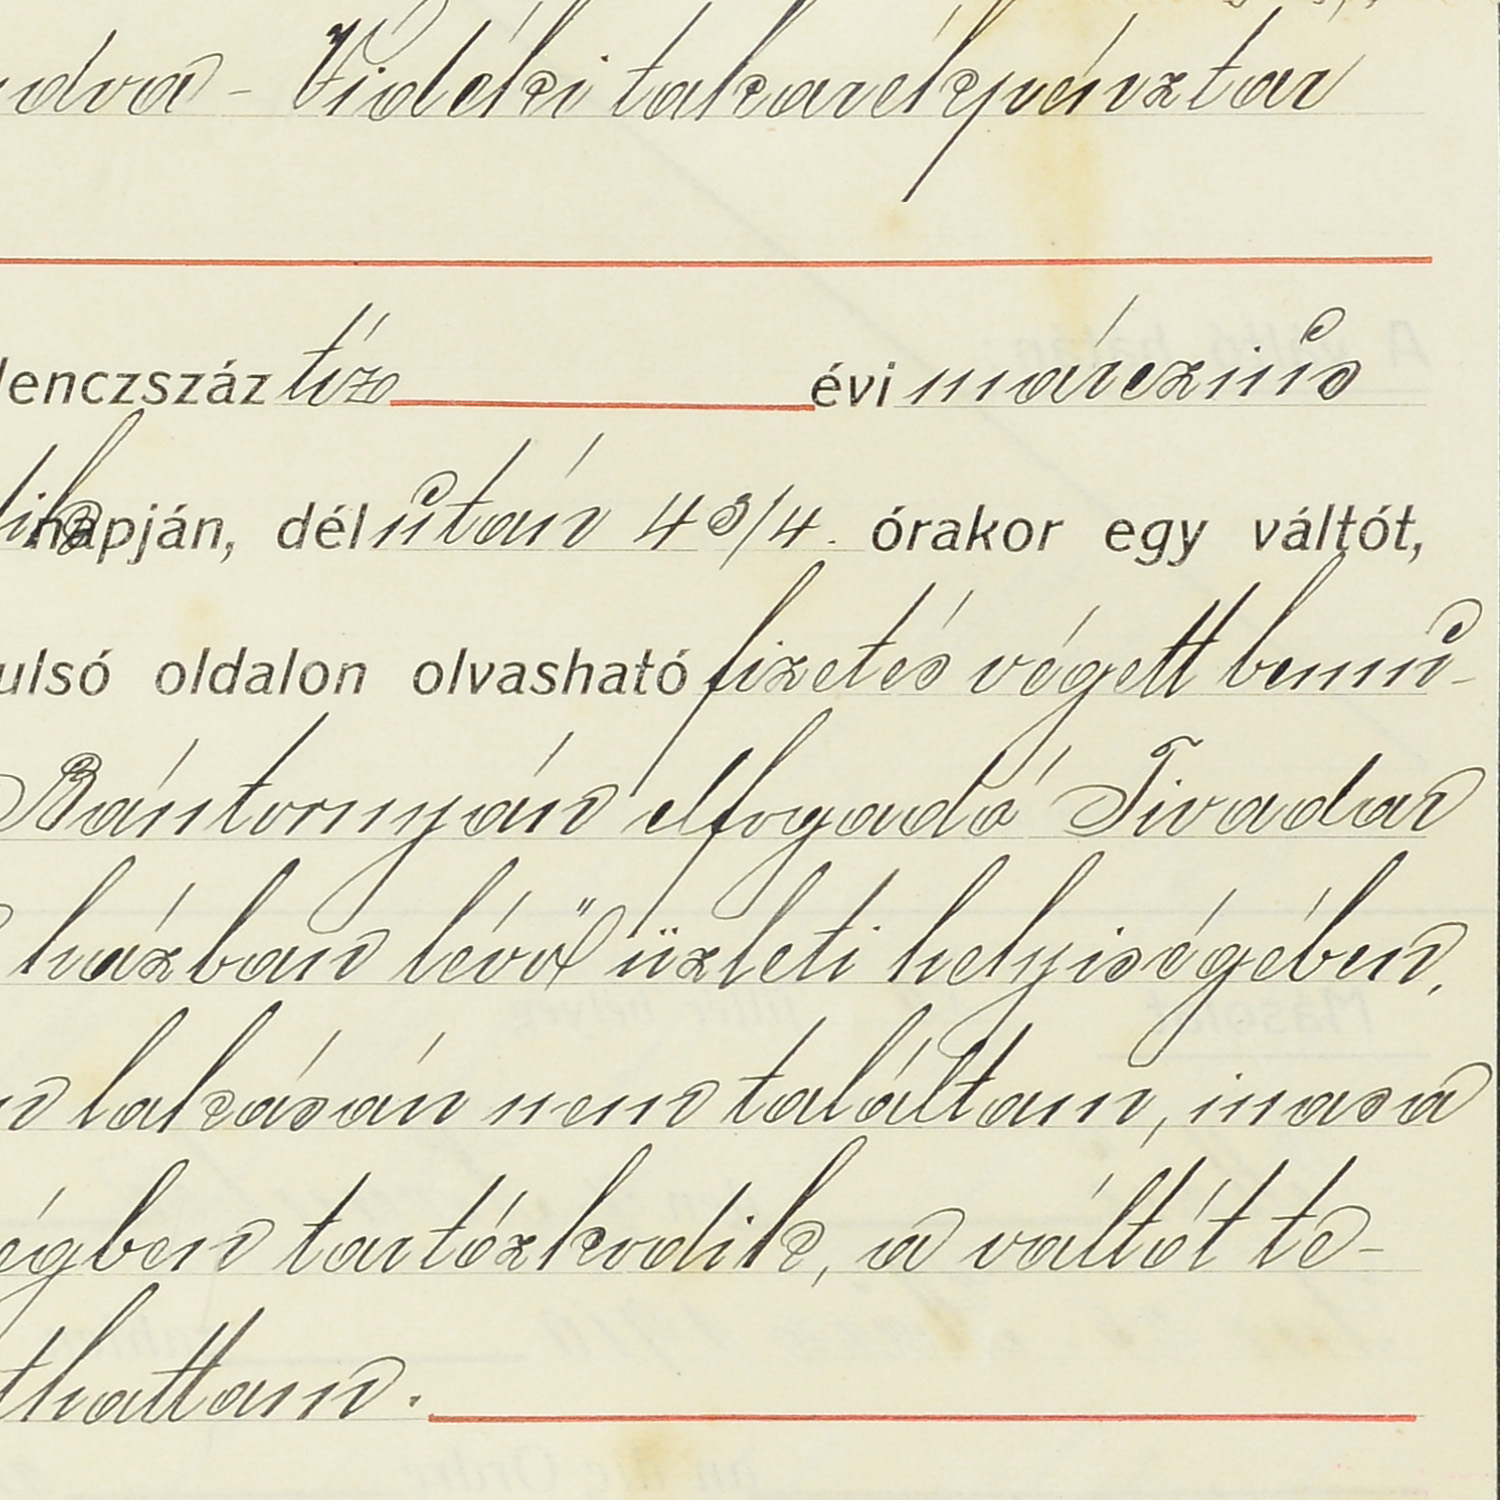 dva - Vidéki takarékpénztár
lenczszáz tíz évi márczius
dik napján, délután 4 3/4 . órakor egy váltót,
ulsó oldalon olvasható fizetés végett bemu-
Bántornyán elfogadó Tivadar
házban lévő üzleti helyiségében,
lakásán nem találtam, inasa
égben tartózkodik, a váltót te-
thattam.